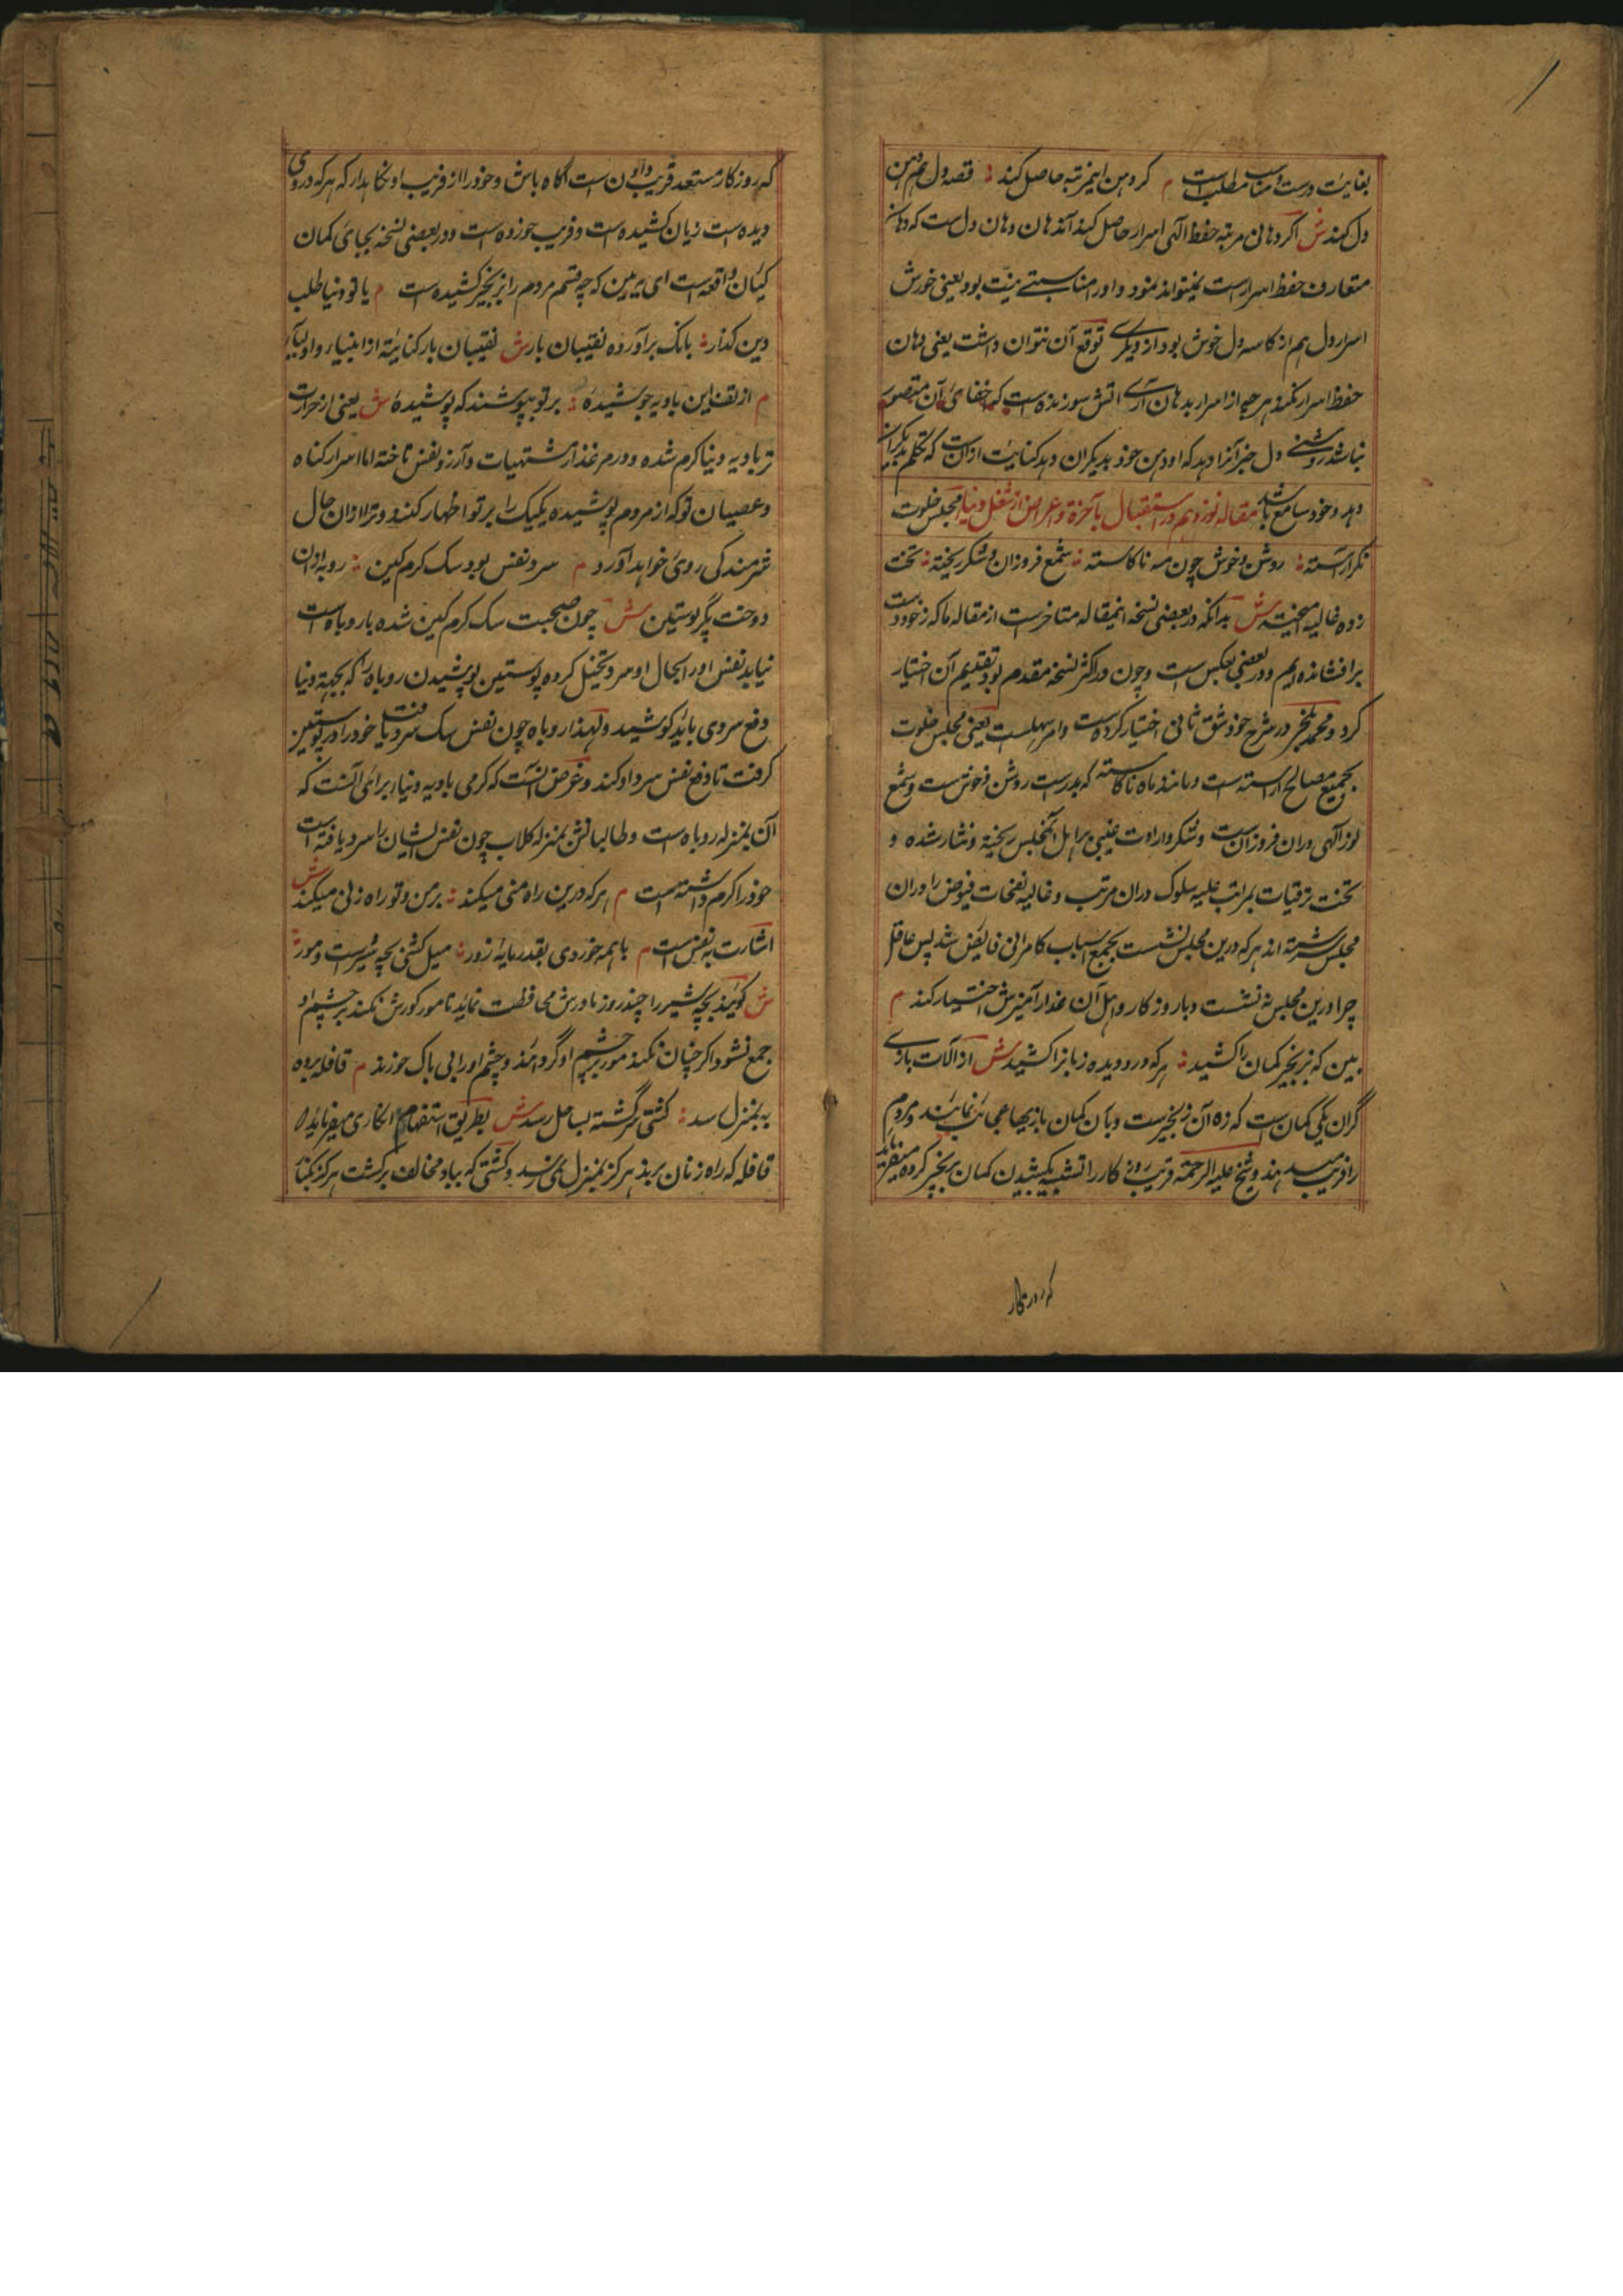 بغایت درست و مناسب مطلب است م کر دهن این مرتبه حاصل کند قصه دل هم دهن
دل کند ش اگر دهانی مرتبه حفظ الهی اسرار حاصل کند آن دهان دهان دل است که دهان
متعارف حفظ اسرار است نمیتواند نمود و او را مناسبتی نیست بود یعنی خورش
اسرار دل هم از کاسه دل خوش بود از دیگری توقع آن نتوان داشت یعنی دهان
حفظ اسرار نکند و هر چه از اسرار بدهان آری آتش سوزنده است که خفای آن متصور
نباشد دل خبر آنرا دهد که او دهن خود بدیگران دهد کنایت از آنست که تکلم بدیگران
دهد و خود سامع باشد مقاله نوزدهم در استقبال بآخرة و اعراض از شغل دنیا مجلس خلوت
نگر آراسته روشن و خوش چون مه ناکاسته شمع فروزان و شکر ریخته تخت
زده غالیه آمیخته ش بدانکه در بعضی نسخه اینمقاله متاخر است از مقاله ماکه ز خود دست
برافشانده ایم و در بعضی بعکس است و چون در اکثر نسخه مقدم بود تقدیم آن اختیار
کرد و محمد بلخی در شرح خود شق ثانی اختیار کرده است و امر سهلست یعنی مجلس خلوت
بجمیع مصالح آراسته است و مانند ماه ناکاسته که بدر است روشن و خوش است و شمع
نور الهی دران فروزان است و شکر واردات غیبی بر اهل آنمجلس ریخته و نثار شده و
تخت ترقیات بمراتب علیه سلوک دران مرتب و غالیه نفحات فیوض را دران
مجلس سرشته اند هر که درین مجلس نشست بجمیع اسباب کامرانی فایض شد پس عاقل
چرا درین مجلس نه نشست و با روزکار و اهل آن غدار آمیزش اختیار کند م
بین که بزنجیر کمان را کشید هر که درو دیده زبانرا کشید ش از آلات بازی
گران یکی کمان است که زه آن زنجیر است و بآن کمان بازیهای عجائب نمایند و مردم
را فریب میدهند و شیخ علیه الرحمة فریب روزکار را تشبیه بکشیدن کمان بزنجیر کرده میفرماید
که روزکار
که روزکار مستعد فریب دادن است آگاه باش و خود را از فریب او نگاهدار که هر که در روی
دیده است زیان کشیده است و فریب خورده است و در بعضی نسخه بجای کمان
کیان واقع است ای ببین که چه قسم مردم را بزنجیر کشیده است م یا تو دنیا طلب
دین گذار بانگ برآورده نقیبان بار ش نقیبان بار کنایة از انبیا و اولیا
م از تف این بادیه جوشیدهٔ بر تو بپوشند که پوشیدهٔ ش یعنی از حرارت
بادیه دنیا گرم شده و در مرغزار مشتهیات و آرزو نفس تاخته اما اسرار گناه
و عصیان تو که از مردم پوشیده یکیک را بر تو اظهار کنند و ترا از ان حال
شرمندگی روی خواهد آورد م سرد نفس بود سگ گرم کین روبه از ان
دوخت مگر پوستین ش چون صحبت سگ گرم کین شده با روباه است
نیاید نفس او را بحال او سرد تخیل کرده پوستین پوشیدن روباه را که بجهة دنیا
دفع سردی باید کوشید و لهذا روباه چون نفس سگ سرد یافت خود را در پوستین
گرفت تا دفع نفس سرد او کند و غرض آنست که گرمی بادیه دنیا برای آنست که
آن بمنزله روباه است و طالبانش بمنزله کلاب چون نفس ایشان را سرد یافته است
خود را گرم داشته است م هر که درین راه منی میکند بر من و تو راه زنی میکند ش
اشارت به نفس است م با همه خوردی بقدر مایهٔ زور میل کش بچه شیر است و مور
ش گویند بچه شیر را چند روز مادرش محافظت نماید تا مور کورش نکند بر چشم او
جمع نشود اگر چنان نکند مور بر چشم او گرد آیند و چشم او را بی باک خورند م قافله برده
به بمنزل رسد کشتی برگشته بساحل رسد ش بطریق استفهام انکاری میفرماید
قافله که راه زنان بردند هرگز بمنزل نمی رسد و کشتی که بباد مخالف برگشت هرگز بکنار